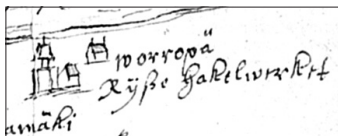 worropä
Rÿße hakelwerket
amäki